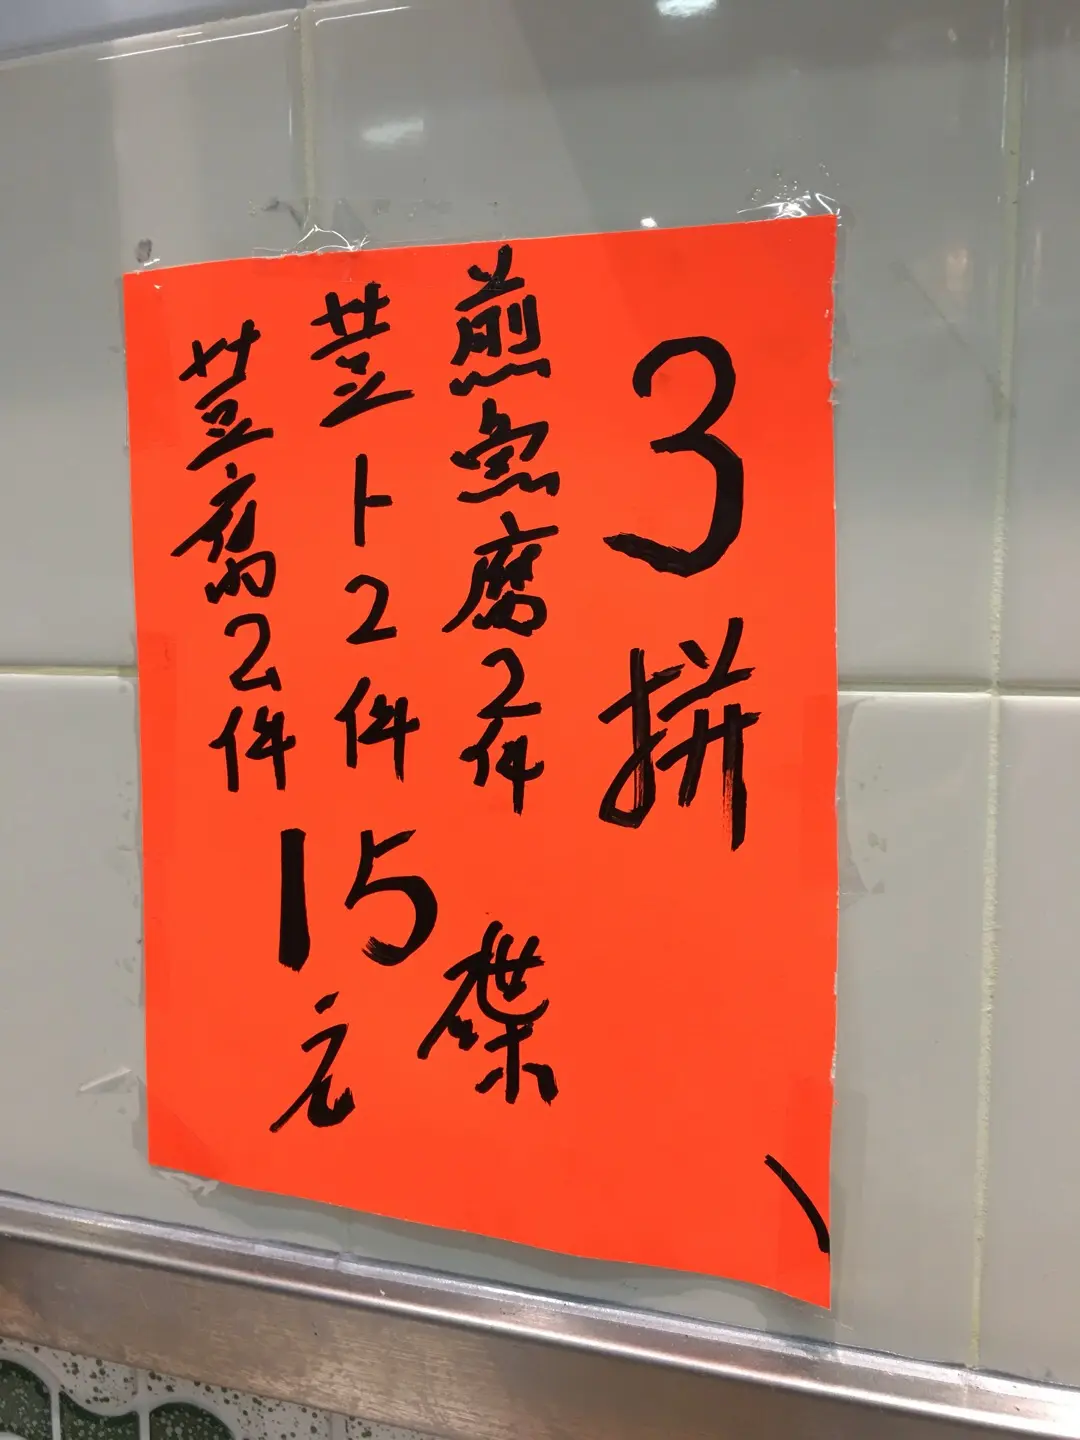 3拼
煎魚腐2件
荳卜2件
荳腐2件
碟
15元